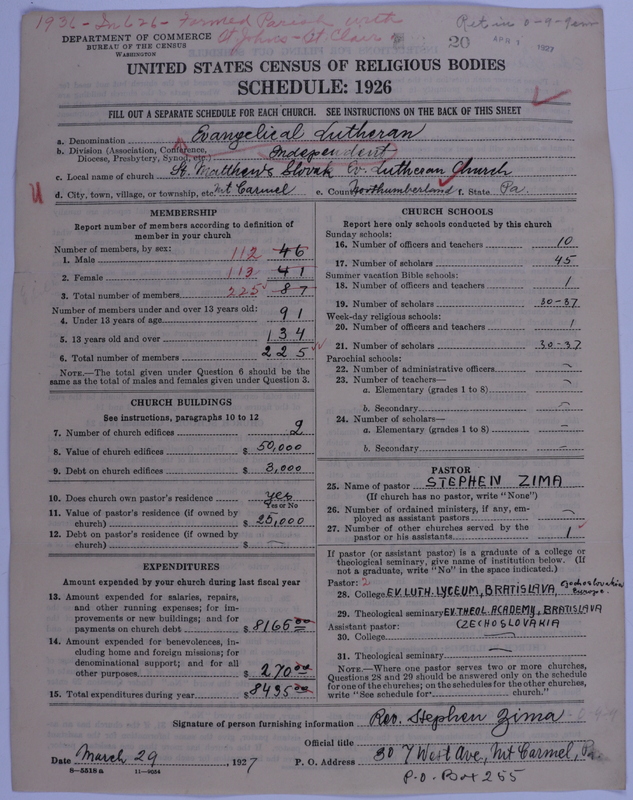 1936 - In 626 - Formed Parish with
St Johns - St. Clair
Ret in
DEPARTMENT OF COMMERCE
BUREAU OF THE CENSUS
WASHINGTON
20
APR 1 1927
UNITED STATES CENSUS OF RELIGIOUS BODIES
SCHEDULE: 1926
FILL OUT A SEPARATE SCHEDULE FOR EACH CHURCH. SEE INSTRUCTIONS ON THE BACK OF THIS SHEET
a. Denomination Evangelical Lutheran
b. Division (Association, Conference, Diocese, Presbytery, Synod, etc.) Independent
c. Local name of church St. Matthew's Slovak Ev. Lutheran Church
d. City, town, village, or township, etc. Mt Carmel e. County Northumberland f. State Pa.
MEMBERSHIP
Report number of members according to definition of
member in your church
Number of members, by sex:
1. Male 112 46
2. Female 113 41
3. Total number of members 225 87
Number of members under and over 13 years old:
4. Under 13 years of age 91
5. 13 years old and over 134
6. Total number of members 225
NOTE.—The total given under Question 6 should be
same as the total of males and females given under Question 3.
CHURCH BUILDINGS
See instructions, paragraphs 10 to 12
7. Number of church edifices 2
8. Value of church edifices $ 50,000
9. Debt on church edifices $ 3,000
10. Does church own pastor's residence yes
Yes or No
11. Value of pastor's residence (if owned by
church) $ 25,000
12. Debt on pastor's residence (if owned by
church) $ —
EXPENDITURES
Amount expended by your church during last fiscal year
13. Amount expended for salaries, repairs,
and other running expenses; for im-
provements or new buildings; and for
payments on church debt $ 8165 00
14. Amount expended for benevolences, in-
cluding home and foreign missions; for
denominational support; and for all
other purposes $ 270 00
15. Total expenditures during year $ 8435 00
CHURCH SCHOOLS
Report here only schools conducted by this church
Sunday schools:
16. Number of officers and teachers 10
17. Number of scholars 45
Summer vacation Bible schools:
18. Number of officers and teachers 1
19. Number of scholars 30-37
Week-day religious schools:
20. Number of officers and teachers 1
21. Number of scholars 30-37
Parochial schools:
22. Number of administrative officers —
23. Number of teachers—
a. Elementary (grades 1 to 8) —
b. Secondary —
24. Number of scholars—
a. Elementary (grades 1 to 8) —
b. Secondary —
PASTOR
25. Name of pastor STEPHEN ZIMA
(If church has no pastor, write "None")
26. Number of ordained ministers, if any, em-
ployed as assistant pastors —
27. Number of other churches served by the
pastor or his assistants 1
If pastor (or assistant pastor) is a graduate of a college or
theological seminary, give name of institution below. (If
not a graduate, write "No" in the space indicated.)
Pastor: 2
28. College EV. LUTH. LYCEUM, BRATISLAVA, Czechoslovakia europe.
29. Theological seminary EV. THEOL. ACADEMY, BRATISLAVA
Assistant pastor: CZECHOSLOVAKIA
30. College —
31. Theological seminary —
NOTE.—Where one pastor serves two or more churches,
Questions 28 and 29 should be answered only on the schedule
for one of the churches; on the schedules for the other churches,
write "See schedule for church."
Signature of person furnishing information Rev. Stephen Zima
Official title
Date March 29, 1927 P. O. Address 307 West Ave, Mt Carmel, Pa.
8—5518a 11—9654
P.O. Box 255